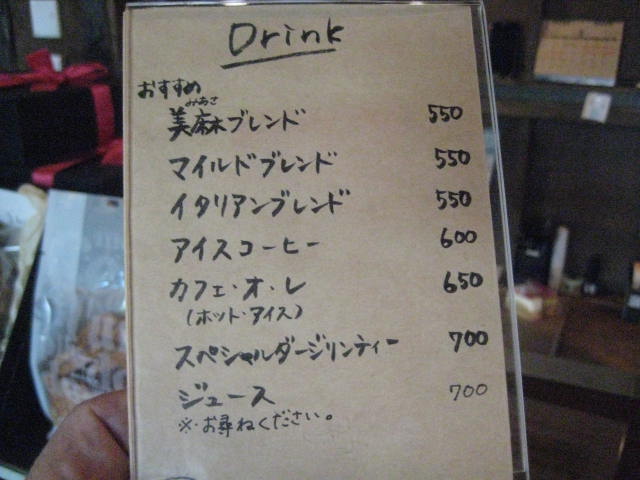 Drink
おすすめ
みあさ
美麻ブレンド 550
マイルドブレンド 550
イタリアンブレンド 550
アイスコーヒー 600
カフェ・オ・レ 650
(ホット・アイス)
スペシャルダージリンティー 700
ジュース 700
※・お尋ねください。